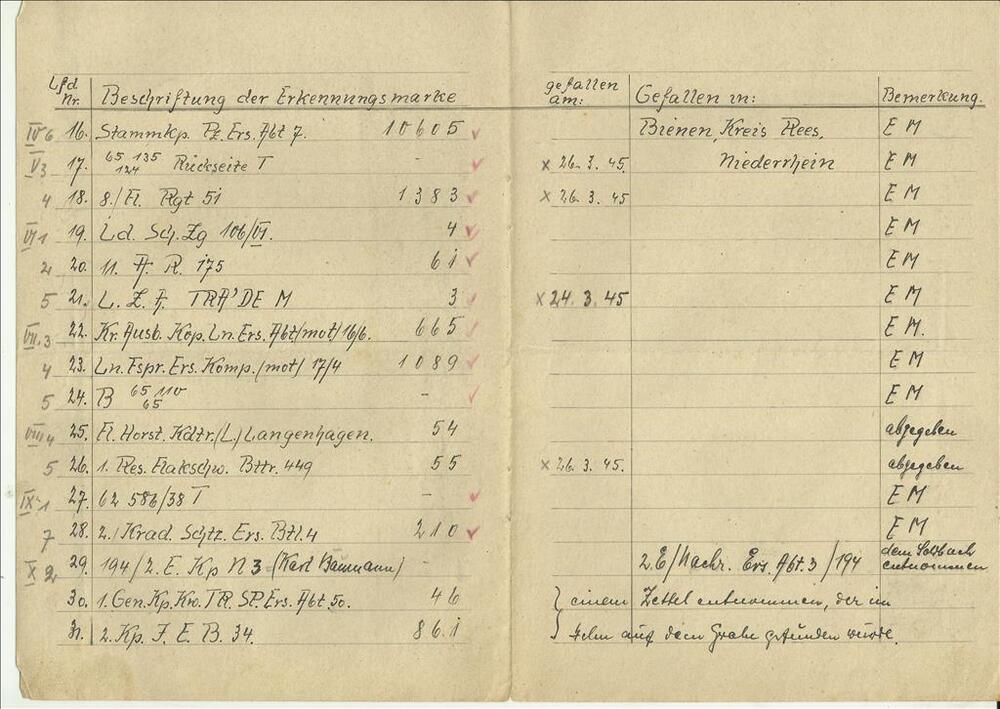 Lfd Nr. Beschriftung der Erkennungsmarke gefallen am: Gefallen in: Bemerkung.
IV 6 16. Stammkp. Pz. Ers. Abt 7. 10605 ✓ Bienen, Kreis Rees, E M
V 3 17. 65 135 124 Rückseite T - ✓ x 26. 3. 45. Niederrhein E M
4 18. 8./Fl. Rgt 51 1383 ✓ x 26. 3. 45 E M
VI 1 19. Ld. Sch. Zg 106/VI. 4 ✓ E M
2 20. 11. A. R. 175 61 ✓ E M
5 21. L. Z. A. TRA'DE M 3 ✓ x 24. 3. 45 E M
VII. 3 22. Kr. Ausb. Kop. Ln. Ers. Abt/mot/ 16/6. 665 ✓ E M.
4 23. Ln. Fspr. Ers. Komp. (mot) 17/4 1089 ✓ E M
5 24. B 65 110 65 - ✓ E M
VIII 4 25. Fl. Horst. Kdtr. (L.) Langenhagen. 54 abgegeben
5 26. 1. Res. Flakschw. Bttr. 449 55 x 26. 3. 45. abgegeben
IX 1 27. 62 586/38 T - ✓ E M
7 28. 2./Krad. Schtz. Ers. Btl. 4 210 ✓ E M
X 2 29. 194/2. E. Kp N 3 (Karl Baumann) - 2. E/Nachr. Ers. Abt. 3/194 dem Soldbuch entnommen
30. 1. Gen. Kp. Kw. TR. SP. Ers. Abt. 50. 46 } einem Zettel entnommen, der im
31. 2. Kp. F. E. B. 34. 861 Helm auf dem Grabe gefunden wurde.